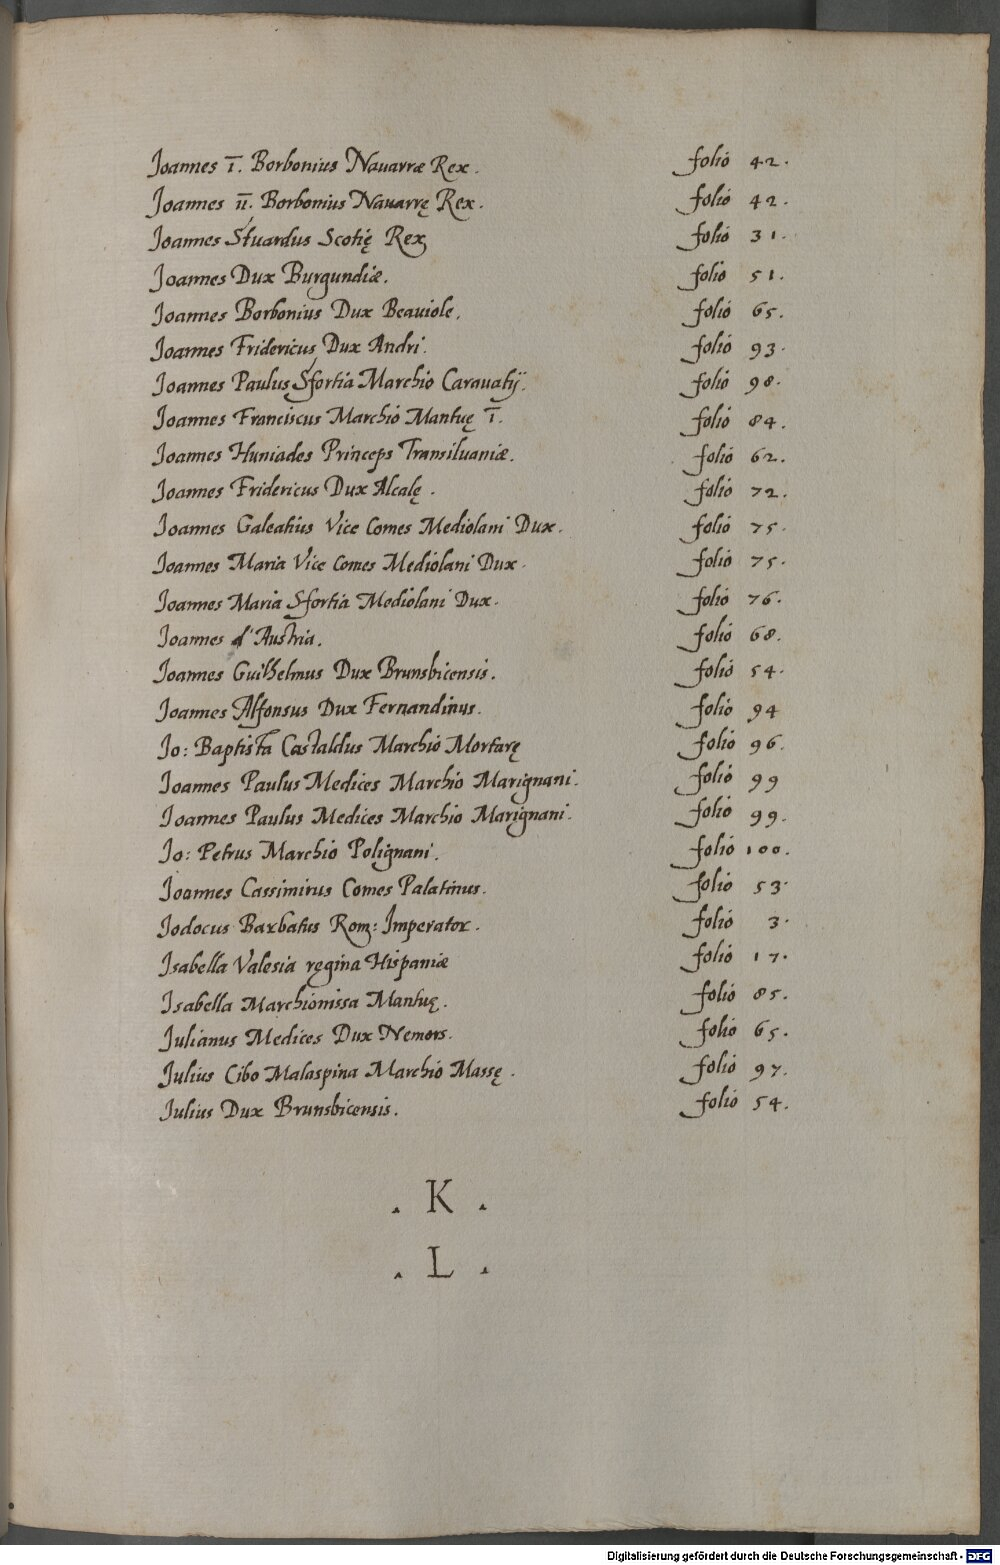 Joannes ī. Borbonius Nauarræ Rex. folio 42.
Joannes īī. Borbonius Nauarrę Rex. folio 42.
Joannes Stuardus Scotię Rex folio 31.
Joannes Dux Burgundiæ. folio 51.
Joannes Borbonius Dux Beauiole. folio 65.
Joannes Fridericus Dux Andri. folio 93.
Joannes Paulus Sfortia Marchio Carauatij. folio 98.
Joannes Franciscus Marchio Mantuę ī. folio 84.
Joannes Huniades Princeps Transiluaniæ. folio 62.
Joannes Fridericus Dux Alcalę. folio 72.
Joannes Galeatius Vice Comes Mediolani Dux. folio 75.
Joannes Maria Vice Comes Mediolani Dux. folio 75.
Joannes Maria Sfortia Mediolani Dux. folio 76.
Joannes d'Austria. folio 68.
Joannes Guilhelmus Dux Brunsbicensis. folio 54.
Joannes Alfonsus Dux Fernandinus. folio 94
Jo: Baptista Castaldus Marchio Mortarę folio 96.
Joannes Paulus Medices Marchio Marignani. folio 99
Joannes Paulus Medices Marchio Marignani. folio 99.
Jo: Petrus Marchio Polignani. folio 100.
Joannes Cassimirus Comes Palatinus. folio 53.
Jodocus Barbatus Rom: Imperator. folio 3.
Isabella Valesia ręgina Hispaniæ folio 17.
Isabella Marchionissa Mantuę. folio 85.
Julianus Medices Dux Nemors. folio 65.
Julius Cibo Malaspina Marchio Massę. folio 97.
Julius Dux Brunsbicensis. folio 54.
. K .
. L .
Digitalisierung gefördert durch die Deutsche Forschungsgemeinschaft - DFG